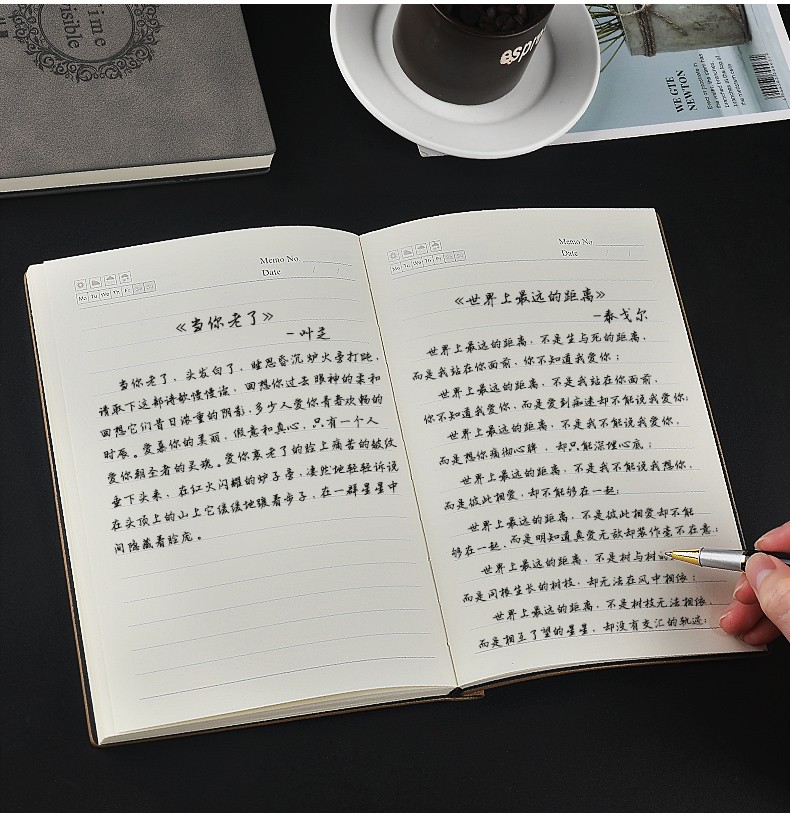 Time
Visible
espre
WE GTE
NEWTON
Memo No.
Date / /
Mo Tu We Th Fr Sa Su
《当你老了》
—叶芝
当你老了，头发白了，睡思昏沉炉火旁打盹，
请取下这部诗歌慢慢读，回想你过去眼神的柔和
回想它们昔日浓重的阴影，多少人爱你青春欢畅的
时辰。爱慕你的美丽，假意和真心，只有一个人
爱你朝圣者的灵魂。爱你衰老了的脸上痛苦的皱纹
垂下头来，在红火闪耀的炉子旁，凄然地轻轻诉说
在头顶上的山上它缓缓地踱着步子，在一群星星中
间隐藏着脸庞。
Memo No.
Date / /
Mo Tu We Th Fr Sa Su
《世界上最远的距离》
—泰戈尔
世界上最远的距离，不是生与死的距离，
而是我站在你面前，你不知道我爱你；
世界上最远的距离，不是我站在你面前，
你不知道我爱你，而是爱到痴迷却不能说我爱你；
世界上最远的距离，不是我不能说我爱你，
而是想你痛彻心脾，却只能深埋心底；
世界上最远的距离，不是我不能说我想你，
而是彼此相爱，却不能够在一起；
世界上最远的距离，不是彼此相爱却不能
够在一起，而是明知道真爱无敌却装作毫不在意；
世界上最远的距离，不是树与树
而是同根生长的树枝，却无法在风中相依；
世界上最远的距离，不是树枝无法相依，
而是相互了望的星星，却没有交汇的轨迹；